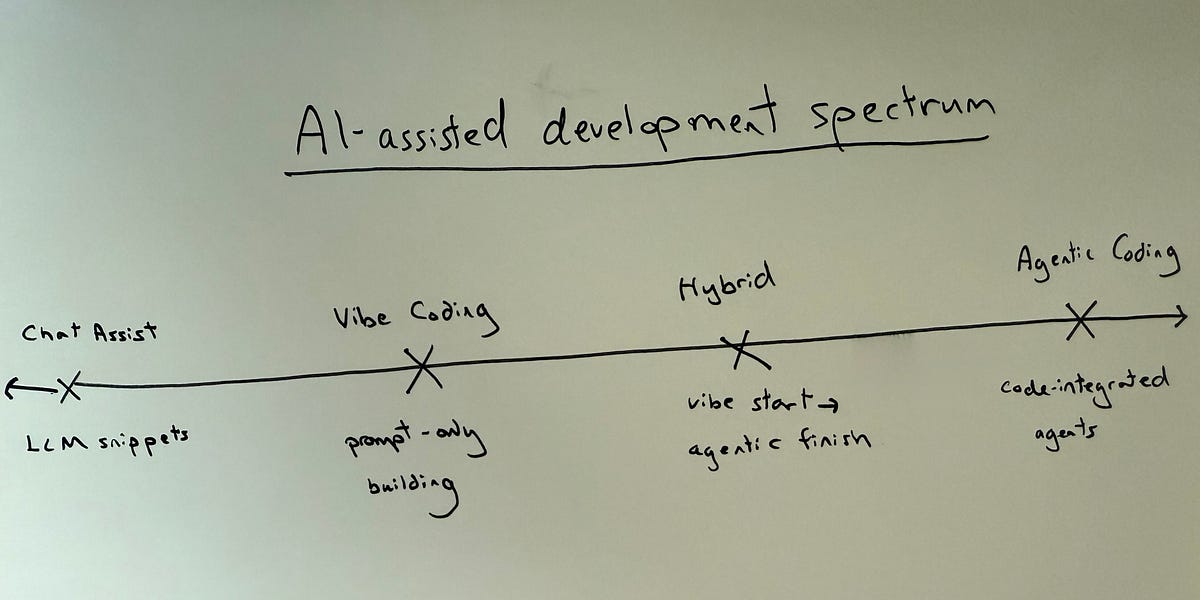 AI-assisted development spectrum
Chat Assist
LLM snippets
Vibe Coding
prompt-only
building
Hybrid
vibe start →
agentic finish
Agentic Coding
code-integrated
agents